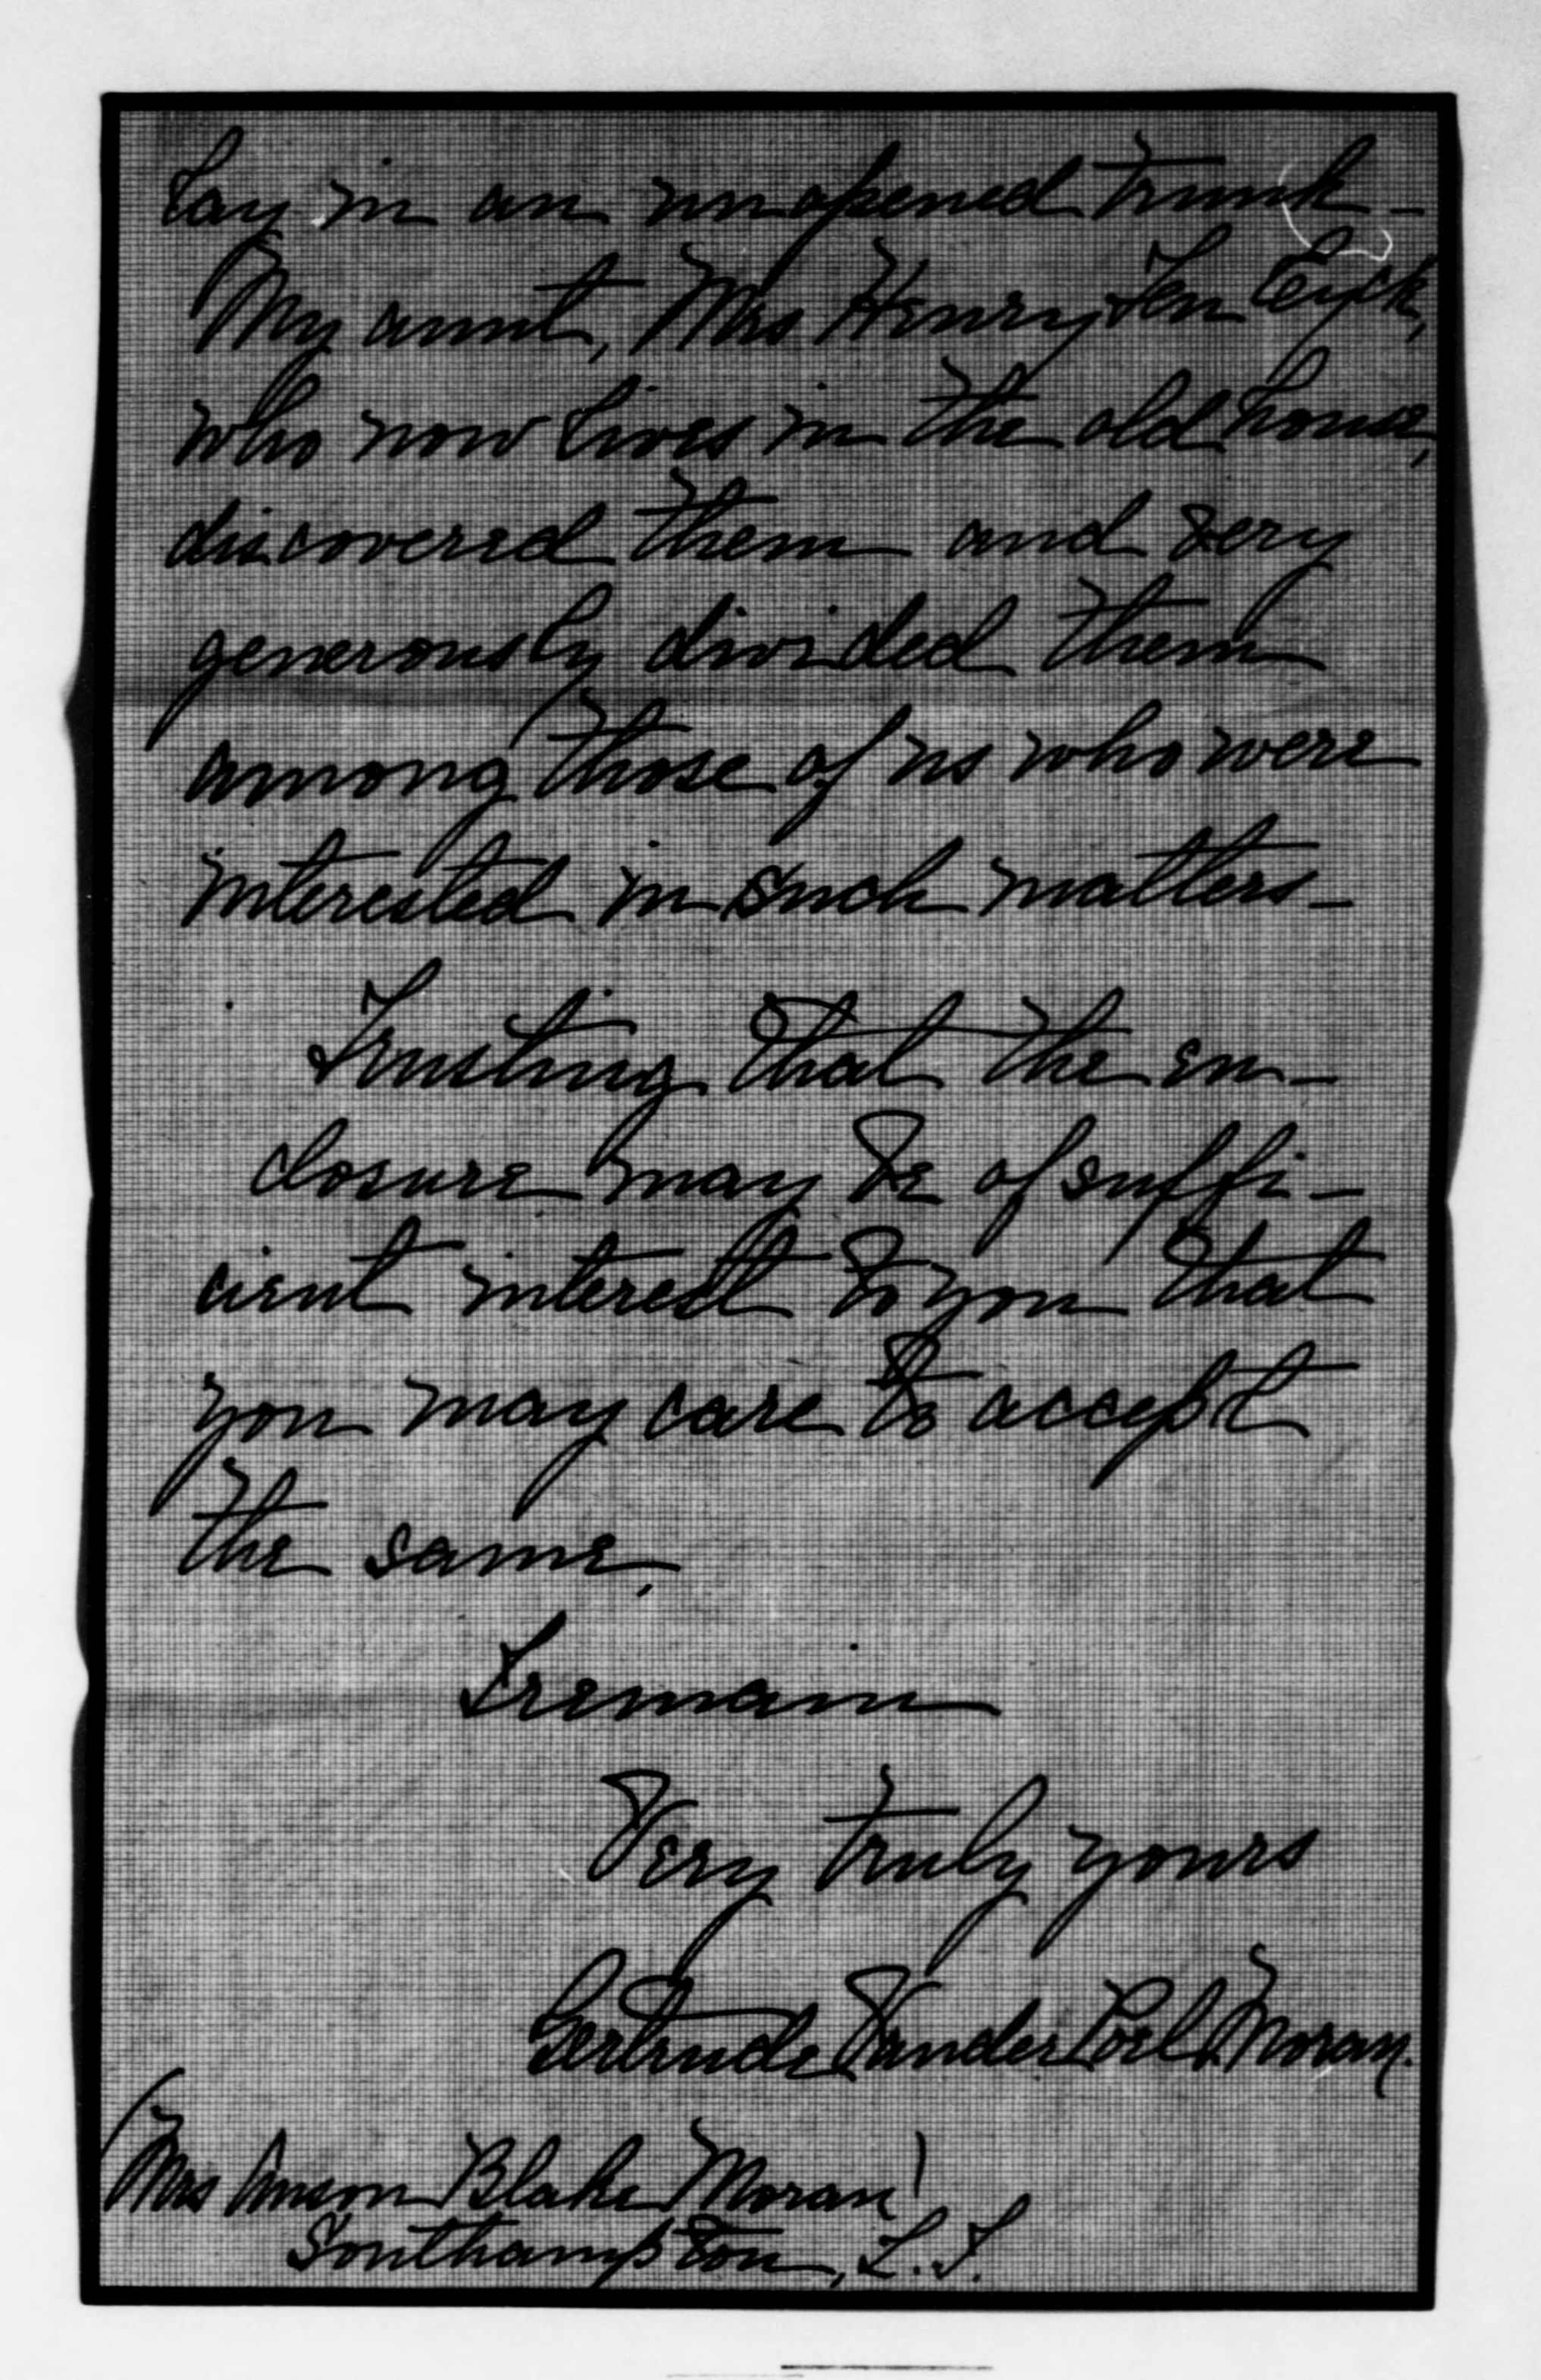 lay in an unopened trunk –
My aunt, Mrs Henry Ten Eyck,
who now lives in the old house,
discovered them and very
generously divided them
among those of us who were
interested in such matters –
Trusting that the en–
closure may be of suffi–
cient interest to you that
you may care to accept
the same,
I remain
Very truly yours
Gertrude Vander Poel Moran.
(Mrs Amson Blake Moran)
Southampton, L.I.